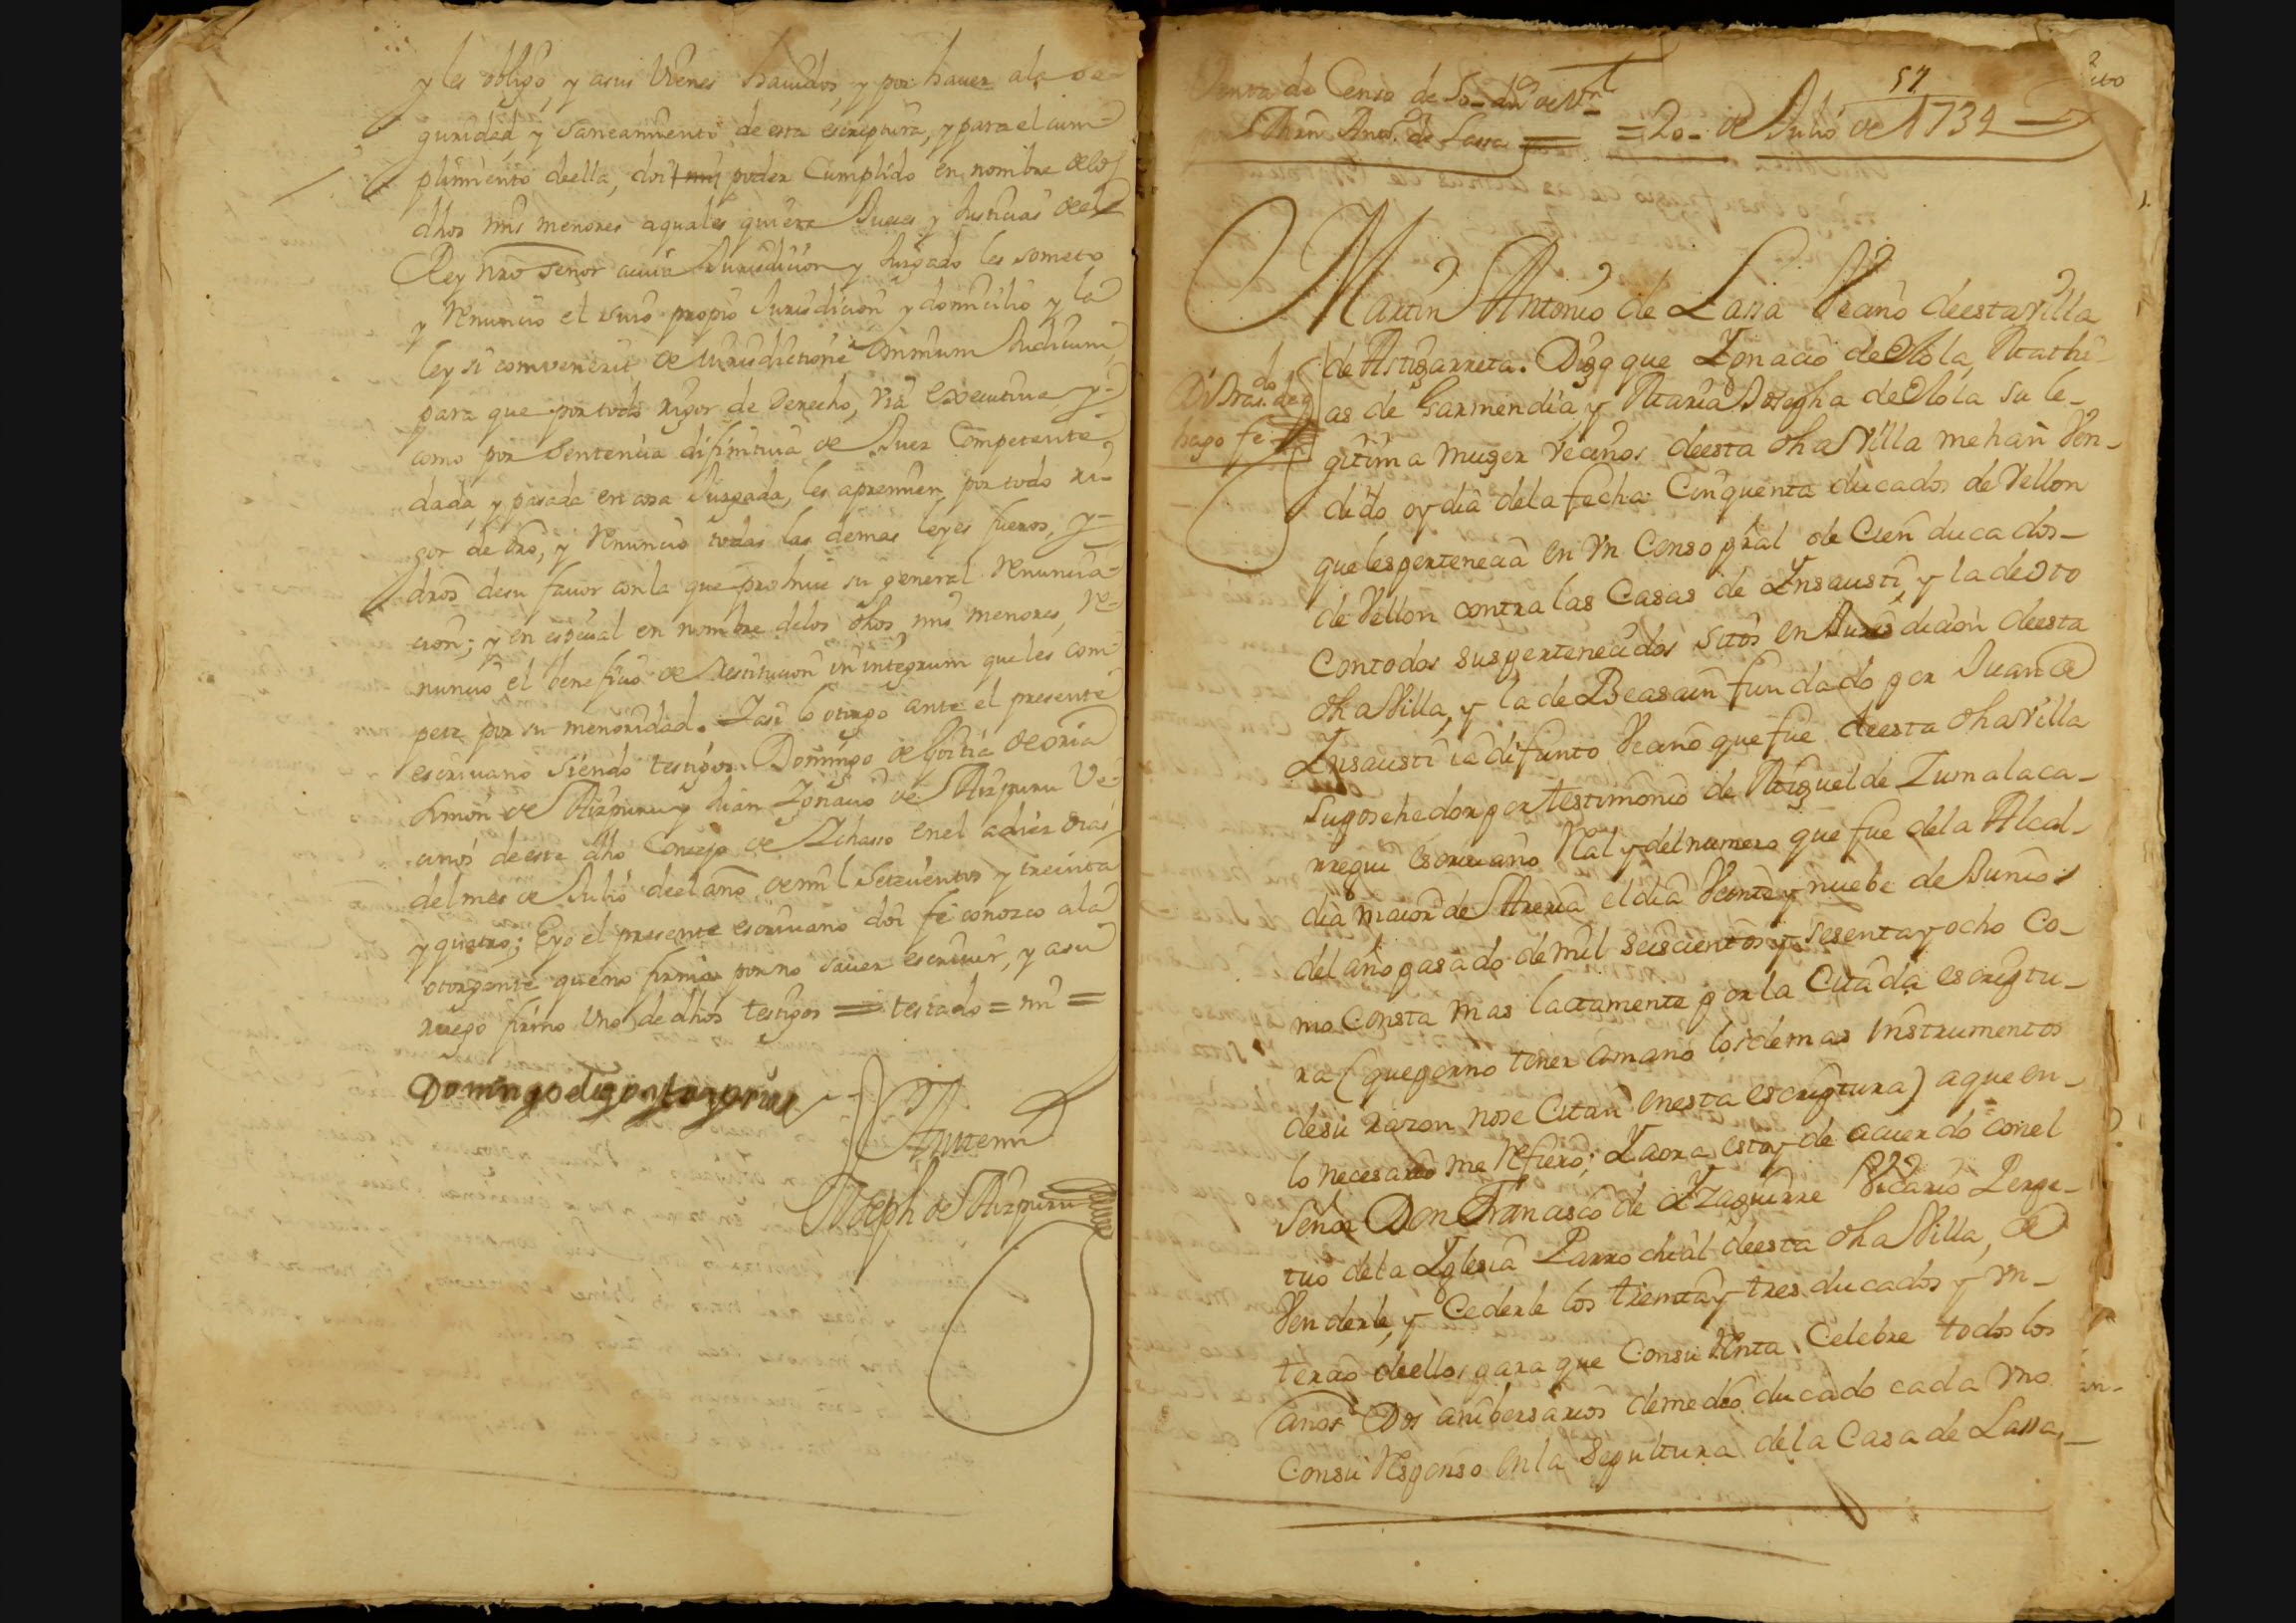 y les obligo, y asus vienes hauidos, y por hauer ala se-
guridad y saneamiento de esta escriptura, y para el cum-
plimiento deella, doi mi poder Cumplido en nombre de los
dhos mis menores aquales quiera Jueces y Justicias de el
Rey nro señor acuia Jurisdicion y Juzgado les someto
y Renuncio el suio propio Jurisdicion y domicilio y la
ley si combenerit de Jurisdictione omnium Judicum
para que por todo rigor de derecho, via executiva y-
como por Sentencia difinitiua de Juez Competente
dada, y pasada en cosa Juzgada, les apremien por todo ri-
gor de dro, y Renuncio todas las demas leyes fueros, y-
dros desu fauor con la que prohiue su general Renuncia-
cion; y en especial en nombre delos dhos mis menores, re-
nuncio el beneficio de Restitucion in integrum que les com-
pete por su menoridad. Yasi lo otorgo ante el presente
escriuano siendo testigos. Domingo de Goitia de oria
Simon de Aizpuru y Juan Ignacio de Aizpuru Ve-
cinos deeste dho Concejo de Ichasso en el adiez dias
del mes de Julio deel año de mil Setecientos y treinta
y quatro; Eyo el presente escriuano doi fe conozco ala
otorgante que no firmo por no sauer escriuir, y asu
ruego firmo Uno de dhos testigos = testado = mi =
Domingo de
Antemi
Joseph de Aizpuru
57
Venta de Censo de 50 dus de Vn
Martin Anto. de Lassa = = 20 - de Julio de 1734
Martin Antonio de Lassa Vecino deesta villa
de Astigarreta. Digo que Ignacio de Olola, Mathi-
as de Garmendia y Maria Josepha de Olola su le-
gitima muger vecinos deesta dha Villa me han Ven-
dido oydia dela fecha Cinquenta ducados de Vellon
que les pertenecia en Vn Censo pral de Cien ducados-
de Vellon contra las Casas de Insausti, y la de Oto
Contodos sus pertenecidos sitos en Jurisdicion deesta
dha Villa, y la de Beasain fundado por Juan de
Insausti ia difunto Vecino que fue deesta dha Villa
Su posehedor por testimonio de Miguel de Zumalaca-
rregui escriuano Ral y del numero que fue dela Alcal-
dia maior de Areria el dia Veinte y nuebe de Junio
del año pasado de mil seiscientos y sesenta y ocho Co-
mo Consta mas lactamente por la Citada escriptu-
ra (que por no tener amano los demas Instrumentos
desu razon nose Citan Enesta escriptura) aque en-
lo necesario me Refiero; Yaora estoy de acuerdo con el
Señor Don Francisco de Yzaguirre Vicario Perpe-
tuo dela Yglesia Parrochial deesta dha Villa, de
Venderle, y Cederle los treinta y tres ducados y Vn-
tercio deellos para que Consu Renta Celebre todos los
años Dos anibersarios demedio ducado cada Vno
Consu Responso Enla Sepultura dela Casa de Lassa,
hago fe